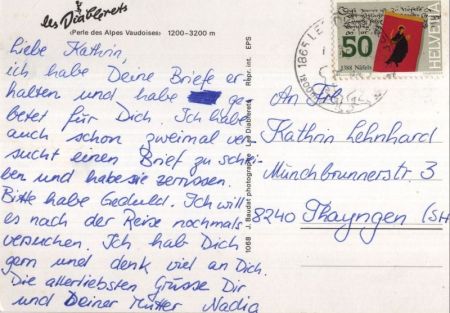 les Diablerets
«Perle des Alpes Vaudoises» 1200–3200 m
Liebe Kathrin,
ich habe Deine Briefe er-
halten und habe ge-
betet für Dich. Ich habe
auch schon zweimal ver-
sucht einen Brief zu schrei-
ben und habe sie zerrissen.
Bitte habe Geduld. Ich will
es nach der Reise nochmals
versuchen. Ich hab Dich
gern und denk viel an Dich.
Die allerliebsten Grüsse Dir
und Deiner Mutter Nadia
1068 J. Baudat photographe Les Diablerets Repr. int. EPS
1865 LES
50
1388 Näfels
HELVETIA
An Frl.
Kathrin Lehnhard
Münchbrunnerstr. 3
8240 Thayngen (SH